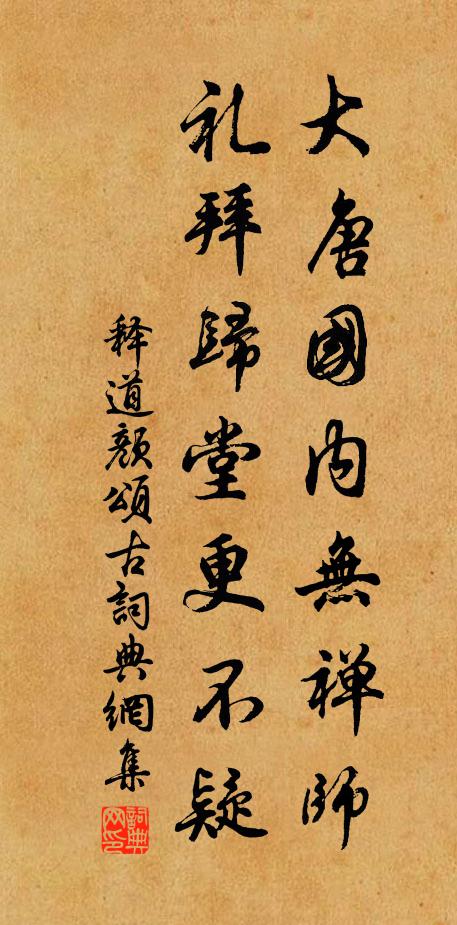 大唐國内無禅師
礼拜歸堂更不疑
释道颜頌古詞典網集
詞典网印